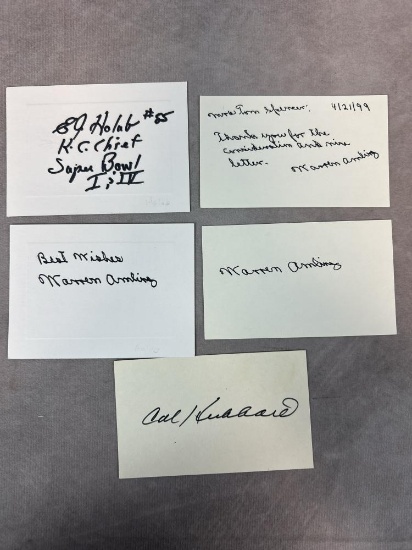 EJ Holub #55
K.C. Chief
Super Bowl
I & IV
Mr Tom Spencer, 4/21/99
Thank you for the
consideration and nice
letter.
Warren Amling
Best Wishes
Warren Amling
Warren Amling
Cal Hubbard